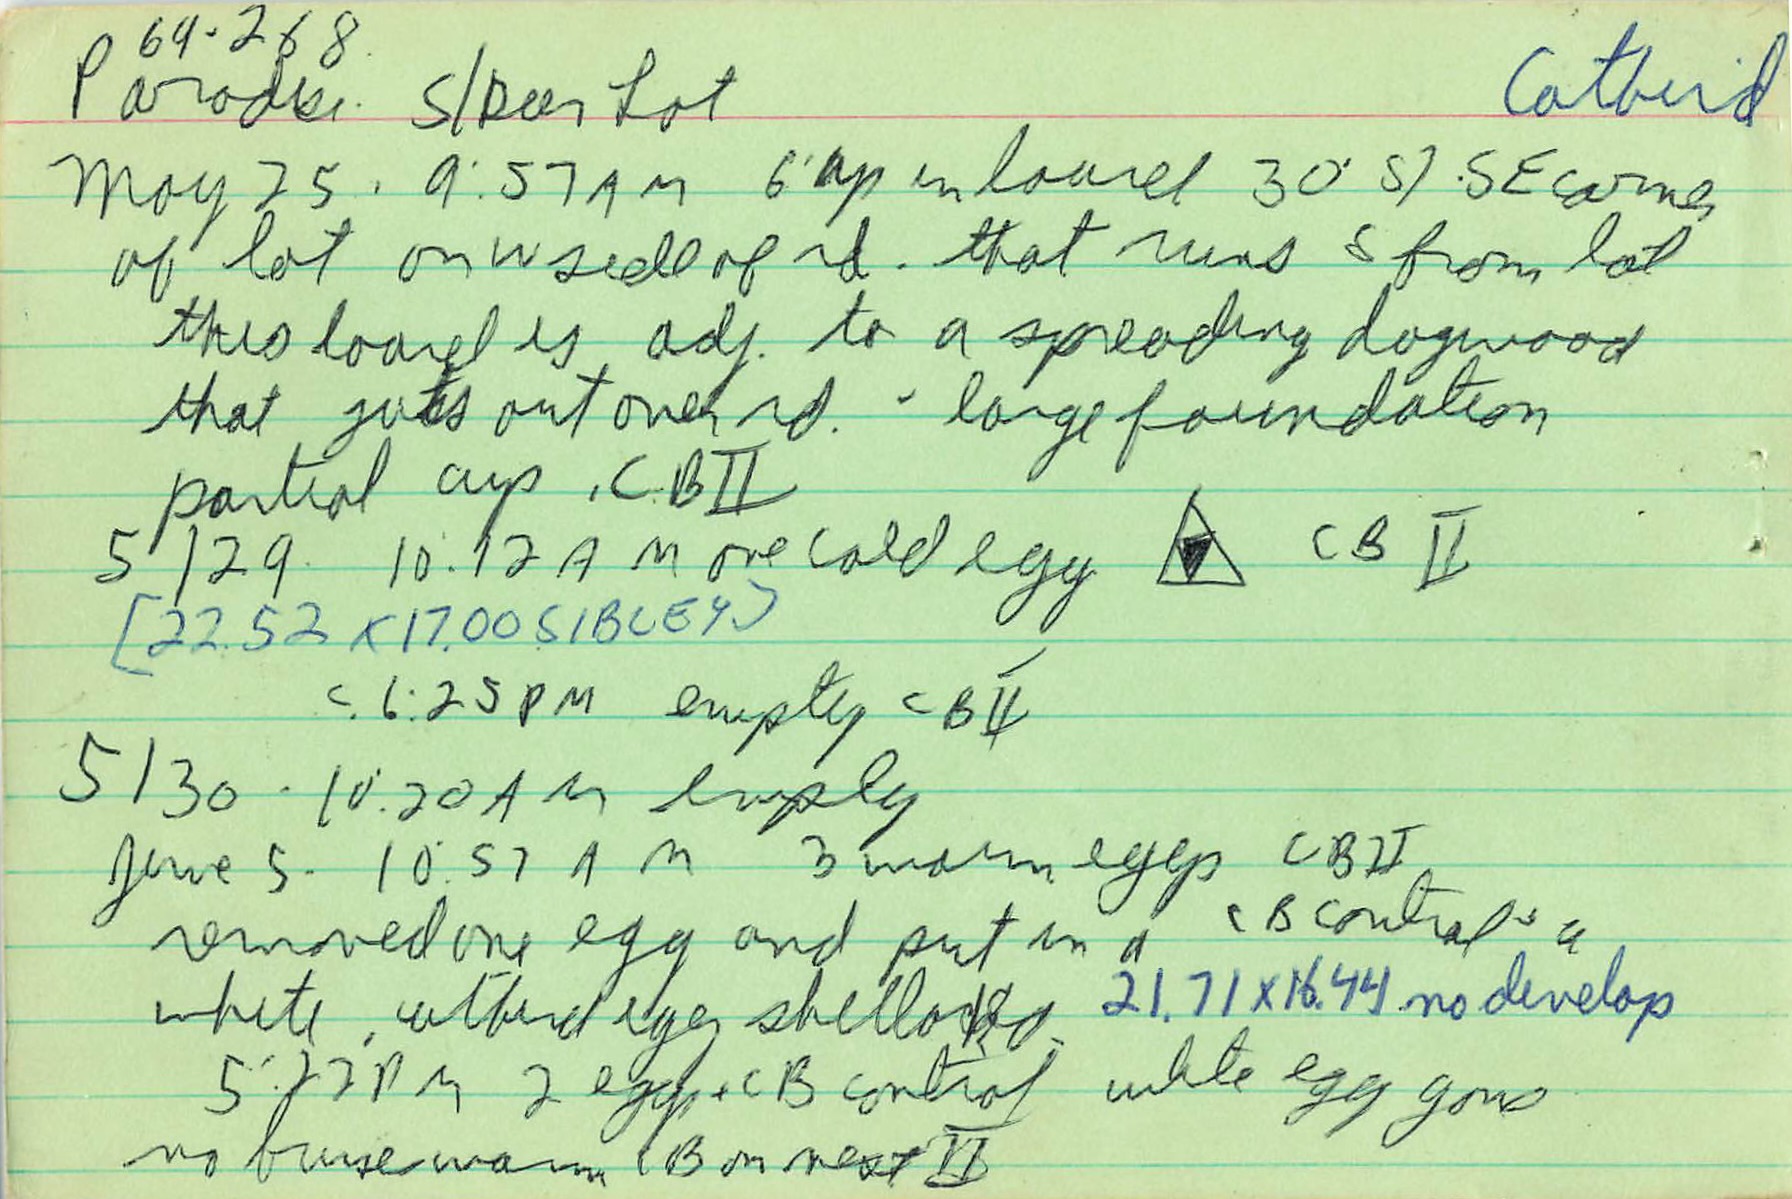 64-268
Paradise. S/Deer Lot
Catbird
May 25. 9:57 AM 6' up in laurel 30' S/ SE corner
of lot on W side of rd. that runs S from lot
this laurel is adj. to a spreading dogwood
that juts out over rd. - large foundation
partial cup. CB II
5/29. 10:12 AM one cold egg CB II
[22.52 x 17.00 SIBLEY]
c. 6:25 PM empty CB II
5/30. 10:20 AM empty
June 5. 10:57 AM 3 warm eggs CB II
removed one egg and put in a CB control + a
white catbird egg shellacked. 21.71 x 16.44 no develop
5:22 PM 2 eggs + CB control white egg gone
no warm CB on nest II